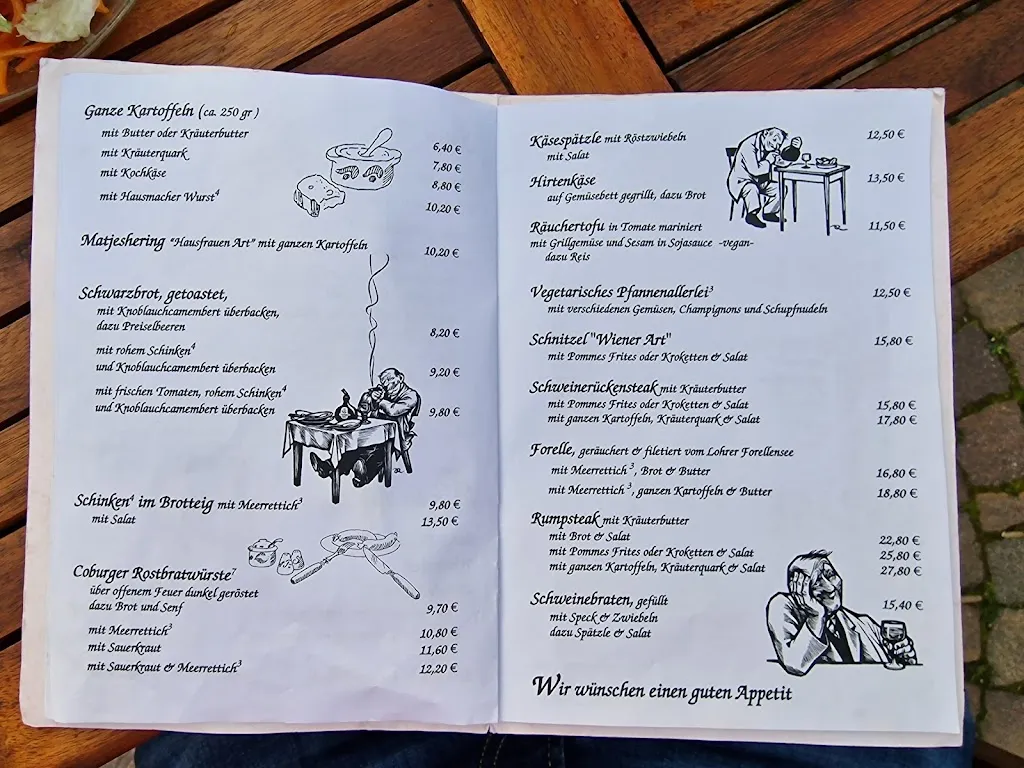 Ganze Kartoffeln (ca. 250 gr )
mit Butter oder Kräuterbutter 6,40 €
mit Kräuterquark 7,80 €
mit Kochkäse 8,80 €
mit Hausmacher Wurst⁴ 10,20 €
Matjeshering "Hausfrauen Art" mit ganzen Kartoffeln 10,20 €
Schwarzbrot, getoastet,
mit Knoblauchcamembert überbacken,
dazu Preiselbeeren 8,20 €
mit rohem Schinken⁴
und Knoblauchcamembert überbacken 9,20 €
mit frischen Tomaten, rohem Schinken⁴
und Knoblauchcamembert überbacken 9,80 €
Schinken⁴ im Brotteig mit Meerrettich³ 9,80 €
mit Salat 13,50 €
Coburger Rostbratwürste⁷
über offenem Feuer dunkel geröstet
dazu Brot und Senf 9,70 €
mit Meerrettich³ 10,80 €
mit Sauerkraut 11,60 €
mit Sauerkraut & Meerrettich³ 12,20 €
Käsespätzle mit Röstzwiebeln 12,50 €
mit Salat
Hirtenkäse 13,50 €
auf Gemüsebett gegrillt, dazu Brot
Räuchertofu in Tomate mariniert 11,50 €
mit Grillgemüse und Sesam in Sojasauce -vegan-
dazu Reis
Vegetarisches Pfannenallerlei³ 12,50 €
mit verschiedenen Gemüsen, Champignons und Schupfnudeln
Schnitzel "Wiener Art" 15,80 €
mit Pommes Frites oder Kroketten & Salat
Schweinerückensteak mit Kräuterbutter
mit Pommes Frites oder Kroketten & Salat 15,80 €
mit ganzen Kartoffeln, Kräuterquark & Salat 17,80 €
Forelle, geräuchert & filetiert vom Lohrer Forellensee
mit Meerrettich ³, Brot & Butter 16,80 €
mit Meerrettich ³, ganzen Kartoffeln & Butter 18,80 €
Rumpsteak mit Kräuterbutter
mit Brot & Salat 22,80 €
mit Pommes Frites oder Kroketten & Salat 25,80 €
mit ganzen Kartoffeln, Kräuterquark & Salat 27,80 €
Schweinebraten, gefüllt 15,40 €
mit Speck & Zwiebeln
dazu Spätzle & Salat
Wir wünschen einen guten Appetit